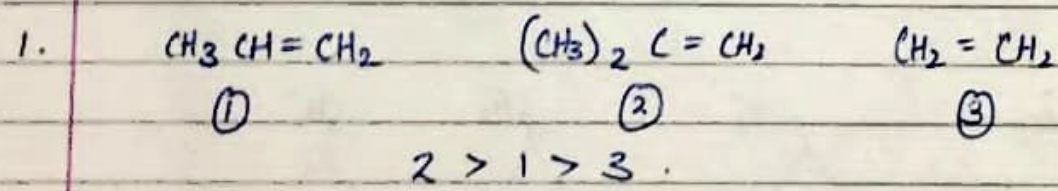 1. CH3 CH = CH2 (CH3)2 C = CH2 CH2 = CH2
① ② ③
2 > 1 > 3 .